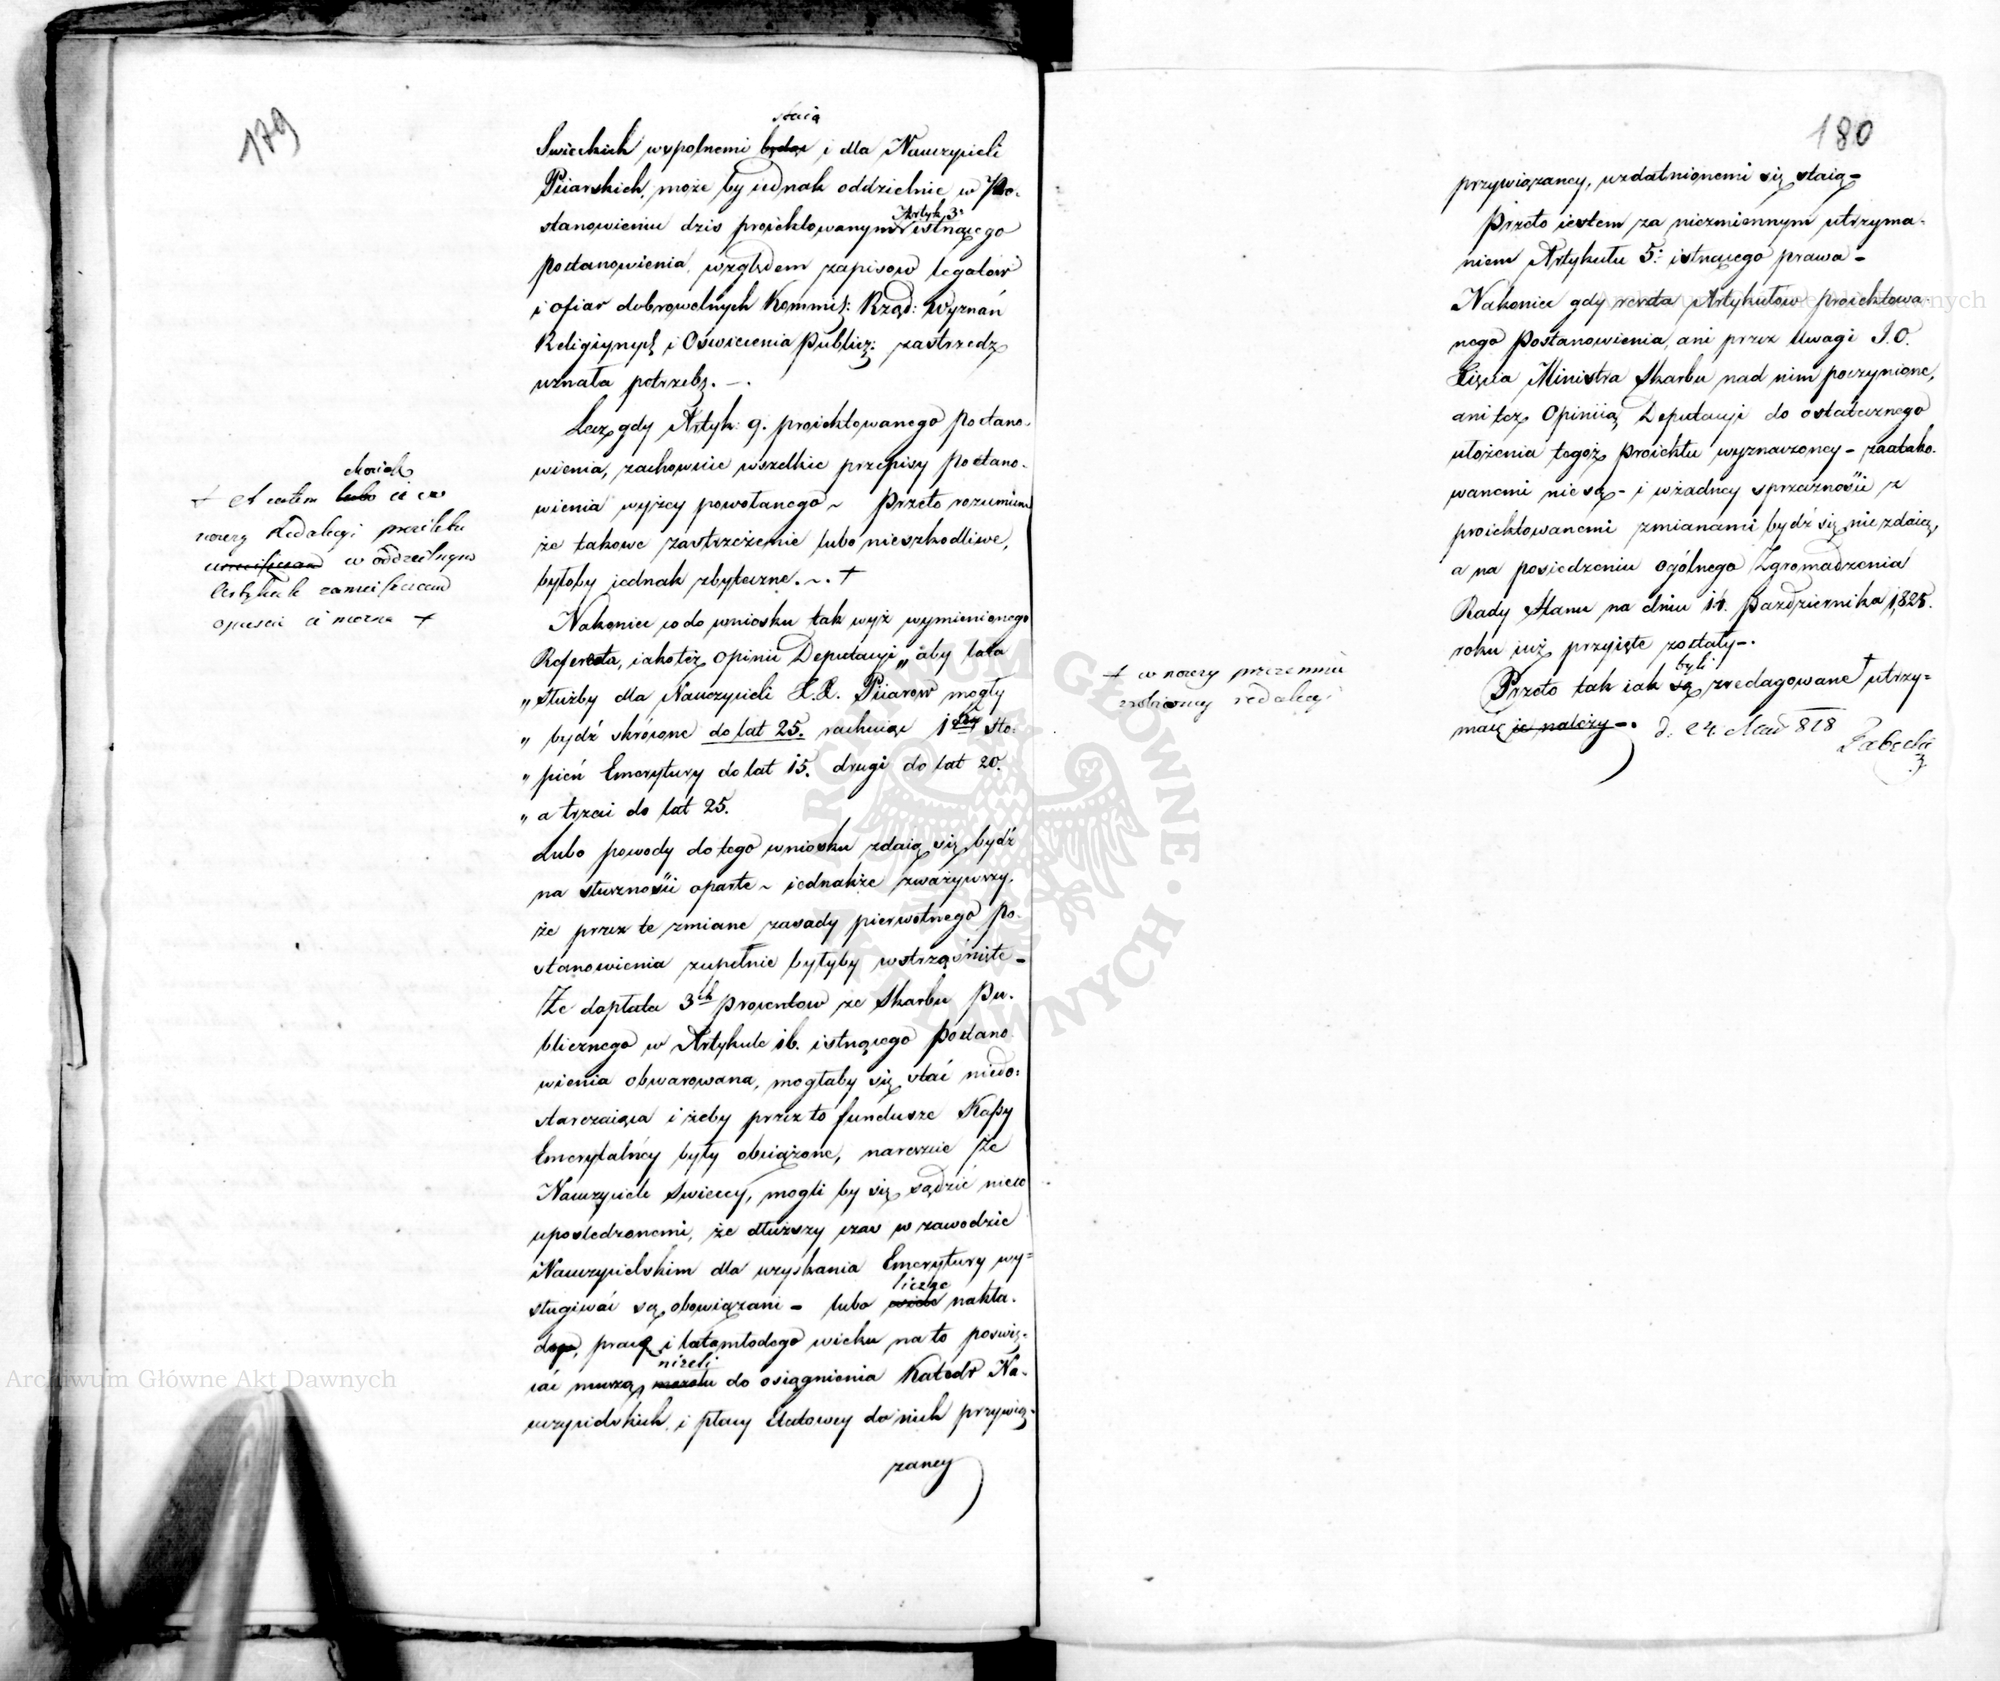 179
staią
Swieckich wspolnemi będąc i dla Nauczycieli
Piiarskich, może by iednak oddzielnie w Po-
Artyk. 3º
stanowieniu dziś proiektowanym istnącego
postanowienia, względem zapisow legatow
i ofiar dobrowolnych Kommis: Rząd: Wyznań
Religiynych i Oświecenia Publicz: zastrzedz
uznała potrzebę. —.
Lecz gdy Artyk: 9. proiektowanego Postano-
wienia, zachowuie wszelkie przepisy Postano-
wienia wyżey powołanego ~ Przeto rozumiem
że takowe zastrzeżenie lubo nieszkodliwe,
byłoby iednak zbyteczne. ~. +
chociaż
+ A zatem lubo ie w
nowey Redakcyi
w oddzielnym
Artykule zamieściłem
opuścić ie można +
Nakoniec co do wniosku tak wyż wymienionego
Referenta, iako też Opinii Deputacyi „ aby lata
„ służby dla Nauczycieli X.X. Piiarow mogły
„ bydź skrócone do lat 25. rachuiąc 1szy sto-
„ pień Emerytury do lat 15. drugi do lat 20.
„ a trzeci do lat 25.
Lubo powody do tego wniosku zdaią się bydź
na słuszności oparte ~ iednakże zważywszy,
że przez te zmiane zasady pierwotnego Po-
stanowienia zupełnie byłyby wstrząśnięte —
Że dopłata 3ch procentow ze Skarbu Pu-
blicznego w Artykule 16. istnącego Postano-
wienia obwarowana, mogłaby się stać niedo-
starczaiąca i żeby przez to fundusze Kassy
Emerytalney były obciążone, nareszcie Że
Nauczyciele Swieccy, mogli by się sądzić nieco
upośledzonemi, że dłuższy czas w zawodzie
Nauczycielskim dla uzyskania Emerytury wy-
licząc
sługiwać są obowiązani — lubo wiele nakła-
dow, pracę i lata młodego wieku na to poswię-
niżeli
cać muszą, do osiągnienia Katedr Na-
uczycielskich, i płacy Etatowey do nich przywią-
zaney
180
przywiązaney, uzdatnionemi się staią —
Przeto iestem za niezmiennym utrzyma-
niem Artykułu 5: istnącego prawa —
Nakoniec gdy reszta Artykułow proiektowa-
nego Postanowienia, ani przez Uwagi J.O.
Xięcia Ministra Skarbu nad nim poczynione,
ani też Opiniią Deputacyi do ostatecznego
ułożenia tegoż Proiektu wyznaczoney — zaatako-
wanemi nie są — i w żadney sprzeczności z
proiektowanemi zmianami bydź się nie zdaią,
a na posiedzeniu ogólnego Zgromadzenia
Rady Stanu na dniu 14. Października 1825.
roku iuż przyięte zostały —.
były
Przeto tak iak są zredagowane + utrzy-
mać ie należy —. d. 24. 828
+ w nowey przezemnie
zrobioney redakcyi
Archiwum Główne Akt Dawnych
Archiwum Główne Akt Dawnych
ARCHIWUM GŁÓWNE AKT DAWNYCH